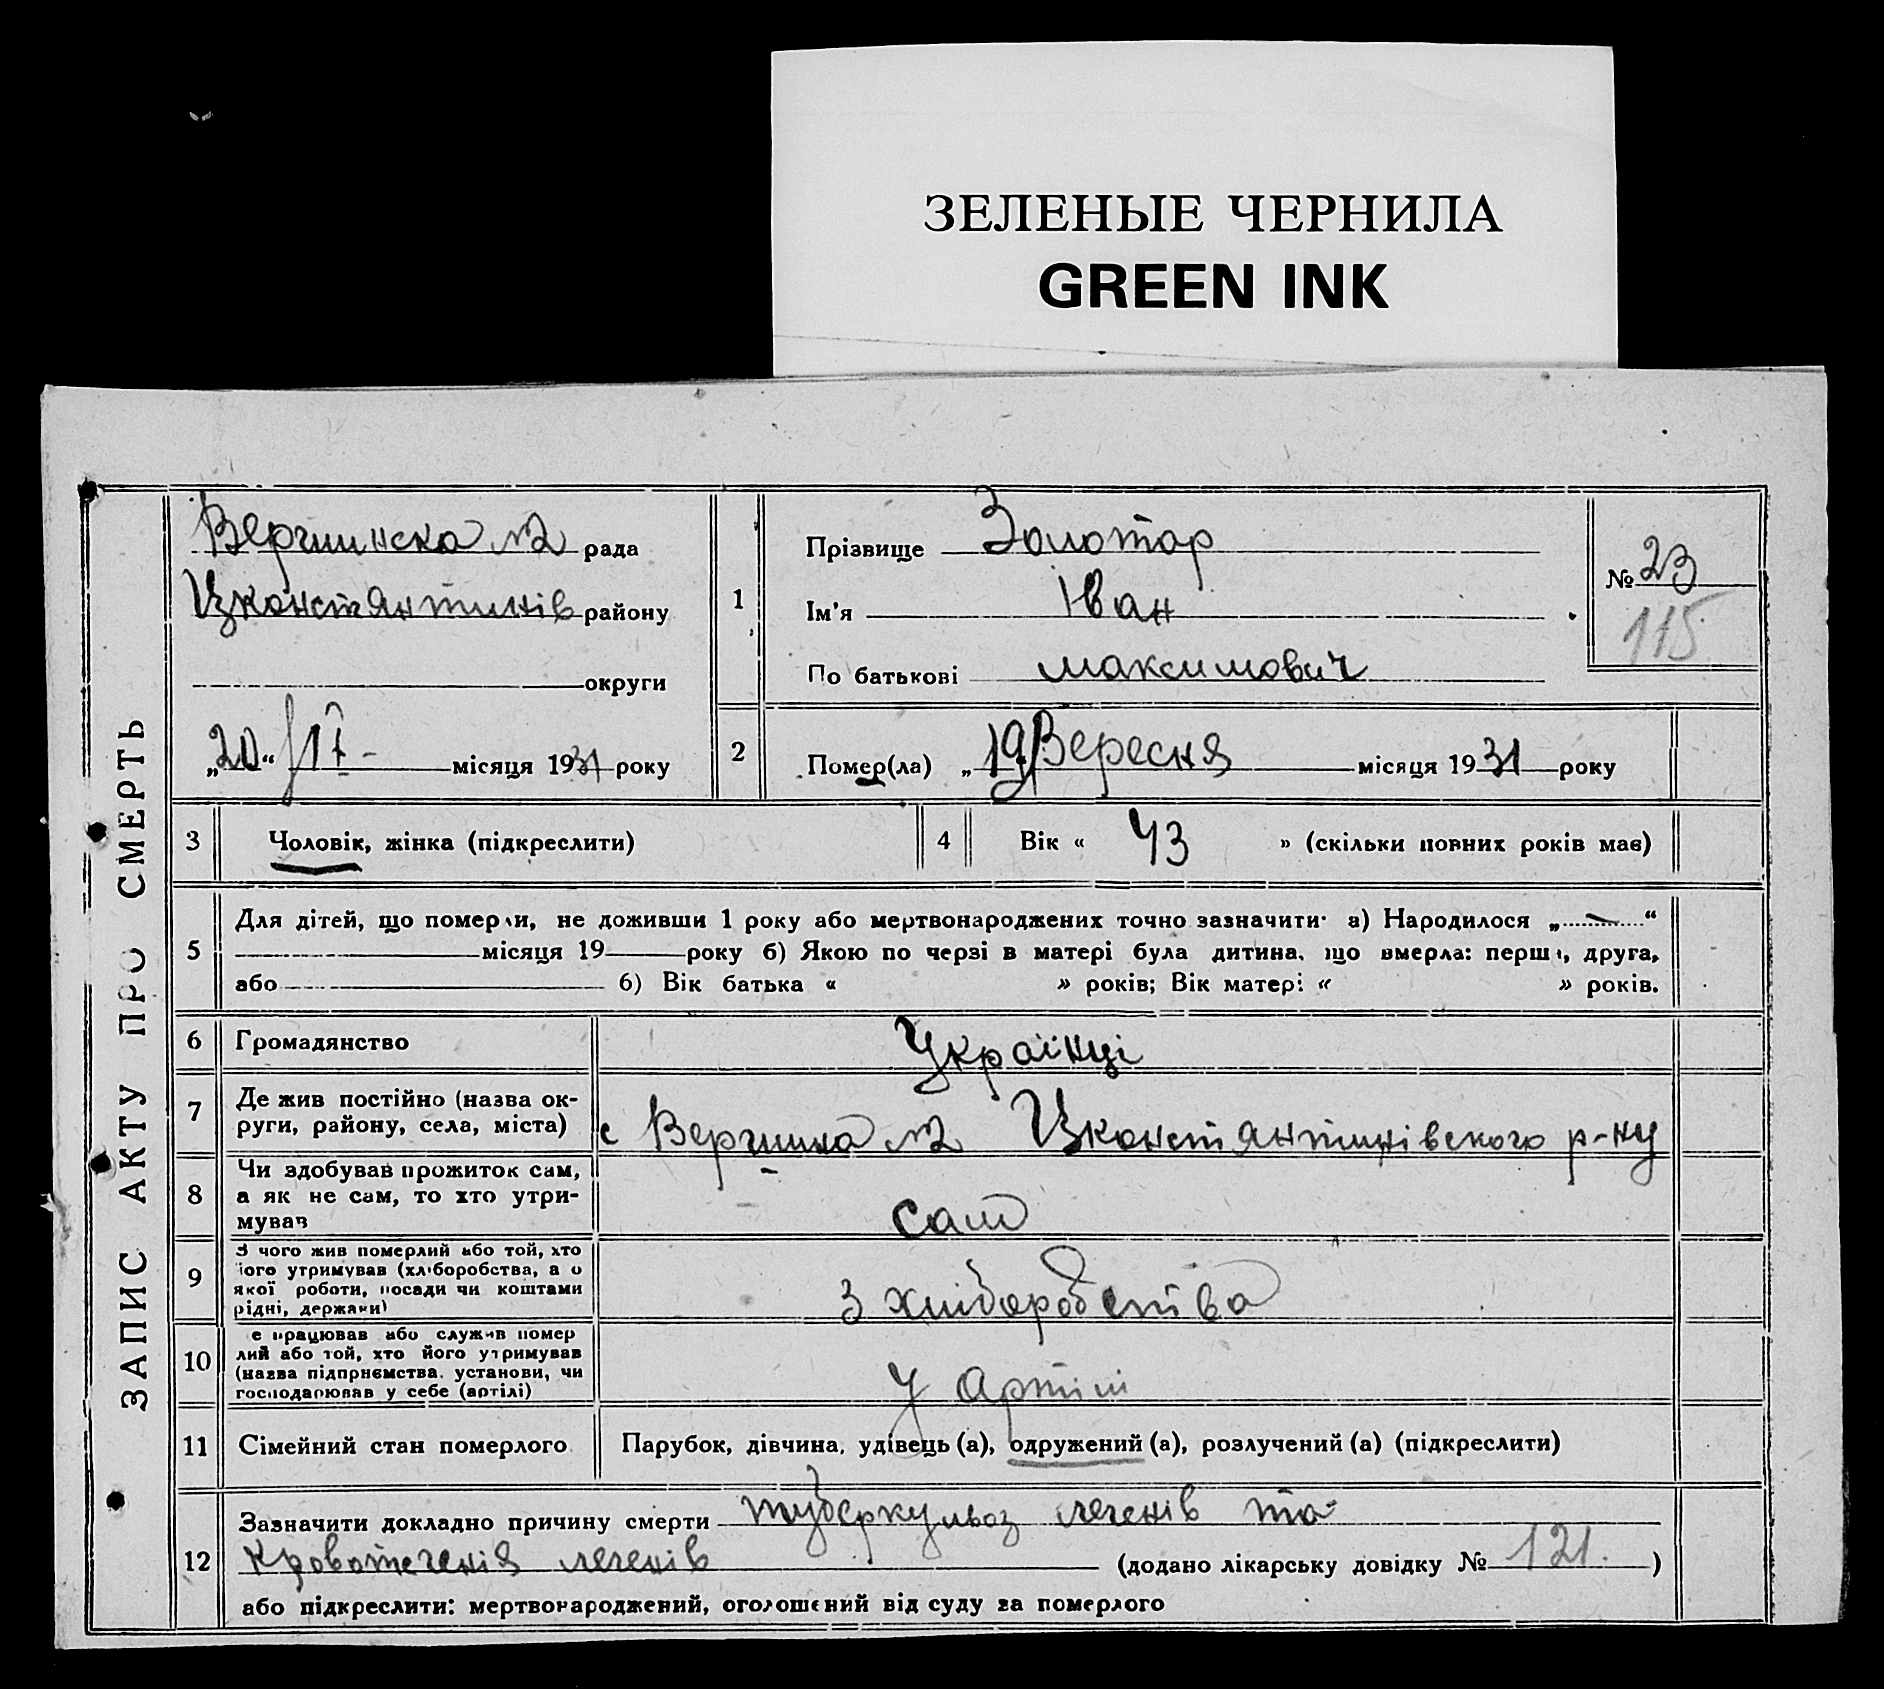 ЗЕЛЕНЫЕ ЧЕРНИЛА
GREEN INK
ЗАПИС АКТУ ПРО СМЕРТЬ
Вергминска №2 рада
Цконстянтинів району
округи
„20“ місяця 1931 року
1
Прізвище Золотар
Ім'я Іван
По батькові максимович
№ 23
115
2
Помер(ла) „19 Вересня місяця 1931 року
3 Чоловік, жінка (підкреслити)
4 Вік « 43 » (скільки повних років мав)
5 Для дітей, що померли, не доживши 1 року або мертвонароджених точно зазначити· а) Народилося „ “
місяця 19 року б) Якою по черзі в матері була дитина, що вмерла: перша, друга,
або б) Вік батька « » років; Вік матері « » років.
6 Громадянство Українці
7 Де жив постійно (назва ок-
руги, району, села, міста) с №2 Цконстянтинівского р-ну
8 Чи здобував прожиток сам,
а як не сам, то хто утри-
мував сам
9 З чого жив померлий або той, хто
його утримував (хліборобства, а о
якої роботи, посади чи коштами
рідні, держави) З хліборобства
10 е працював або служив помер
лий або той, хто його утримував
(назва підприємства, установи, чи
господарював у себе (артілі) У Артілі
11 Сімейний стан померлого Парубок, дівчина, удівець (а), одружений (а), розлучений (а) (підкреслити)
12 Зазначити докладно причину смерти туберкульоз легенів та-
кровотеченія легенів (додано лікарську довідку № 121. )
або підкреслити: мертвонароджений, оголошений від суду за померлого